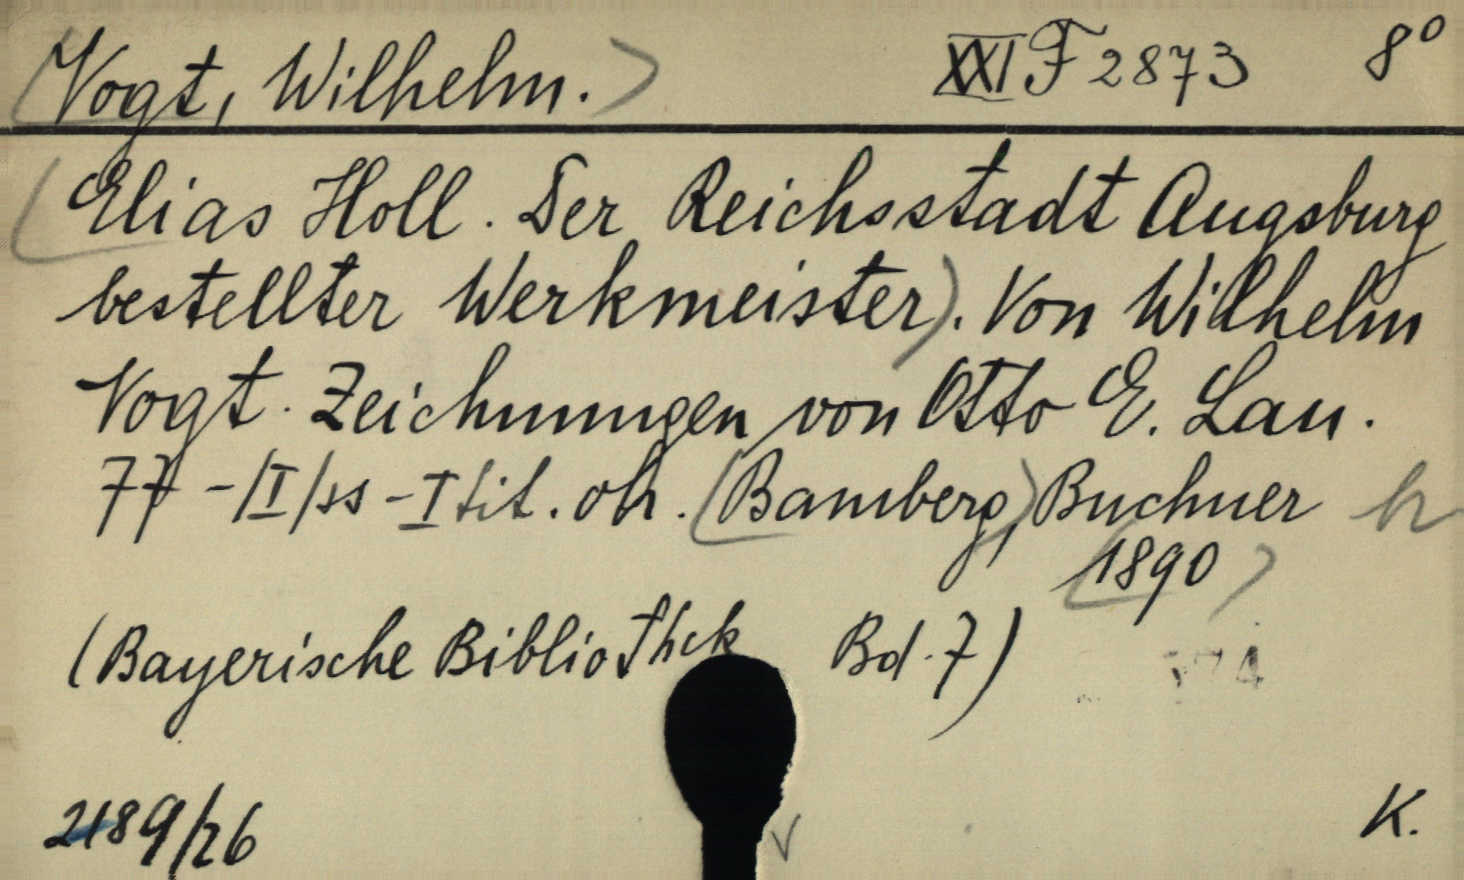 Vogt, Wilhelm. XXI F 2873 8°
Elias Holl. Der Reichsstadt Augsburg
bestellter Werkmeister. Von Wilhelm
Vogt. Zeichnungen von Otto E. Lau.
77 -/I/ss -I tit. olr. (Bamberg, Buchner
1890
(Bayerische Bibliothek Bd. 7)
2189/26 K.